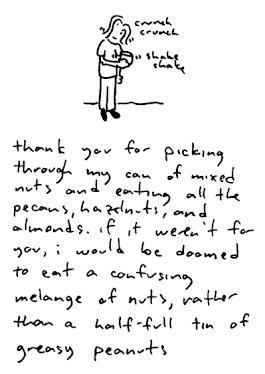 crunch
crunch
shake
shake
thank you for picking
through my can of mixed
nuts and eating all the
pecans, hazelnuts, and
almonds. if it weren't for
you, i would be doomed
to eat a confusing
melange of nuts, rather
than a half-full tin of
greasy peanuts